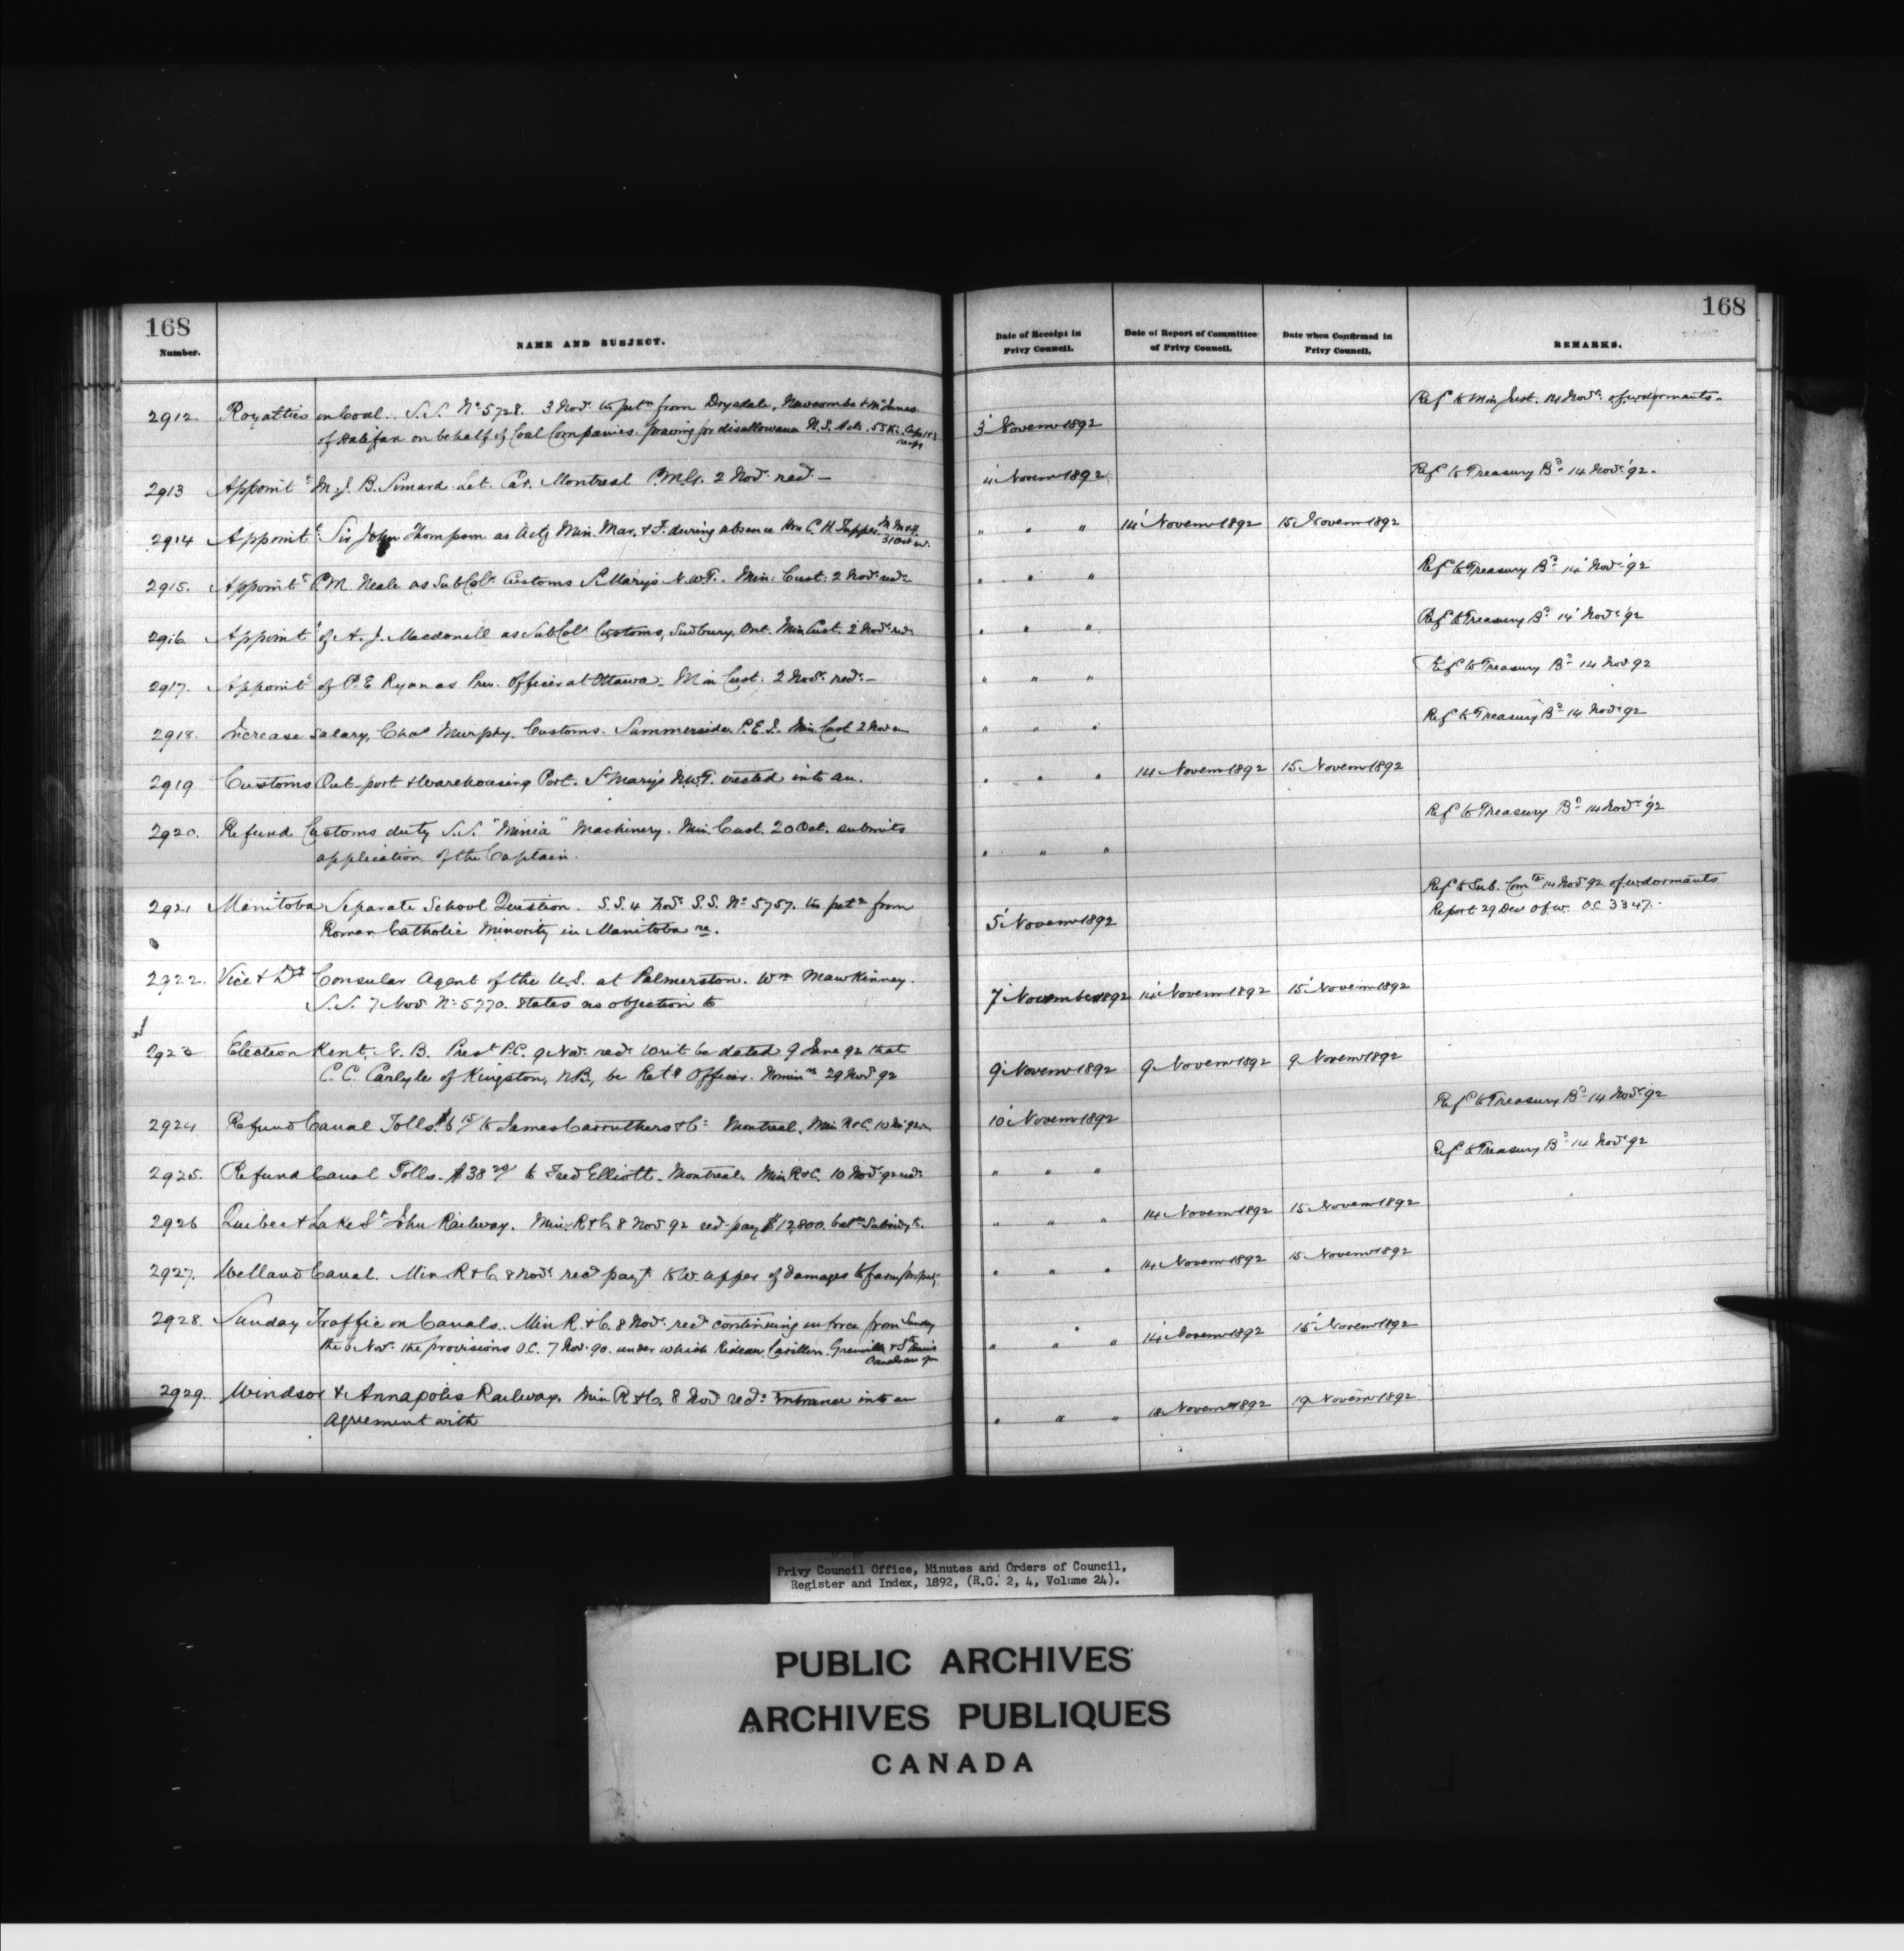 168
168
Number.
NAME AND SUBJECT.
Date of Receipt in Privy Council.
Date of Report of Committee of Privy Council.
Date when Confirmed in Privy Council.
REMARKS.
2912 Royalties on Coal. S.S. No 5728. 3 Nov. petn from Drysdale, Newcombe & McInnes
of Halifax on behalf of Coal Companies. praying for disallowance N.S. Acts. 55 Vic.
3 Novemr 1892
Ref to Min Just. 14 Novr
2913 Appointt M. J. B. Simard Let. Car. Montreal P.M.G. 2 Nov. recd —
4 Novemr 1892
Refd to Treasury Bd 14 Nov. '92.
2914 Appointt Sir John Thompson as Actg Min. Mar. & F. during absence Hon C. H. Tupper. M M & F. 31 Oct
" " " 14 Novemr 1892 15 Novemr 1892
2915. Appointt P.M. Neale as Sub Colr Customs St Marys N.W.T. Min. Cust. 2 Nov. recd
" " "
Refd to Treasury Bd 14 Nov. '92
2916 Appointt of A. J. Macdonell as Sub Colr Customs, Sudbury, Ont. Min Cust. 2 Nov. recd
" " "
Refd to Treasury Bd 14 Nov. '92
2917. Appointt of P. E. Ryan as Prev. Officer at Ottawa. Min Cust. 2 Nov. recd —
" " "
Refd to Treasury Bd 14 Nov 92
2918. Increase Salary, Chas Murphy. Customs. Summerside. P.E.I. Min. Cust 2 Nov
" " "
Refd to Treasury Bd 14 Nov. 92
2919 Customs Out-port & Warehousing Port. St Marys N.W.T. erected into an.
" " " 14 Novemr 1892 15 Novemr 1892
2920. Refund Customs duty S.S. "Minia" Machinery. Min. Cust. 20 Oct. submits
application of the Captain.
" " "
Refd to Treasury Bd 14 Nov. '92
2921 Manitoba Separate School Question. S.S. 4 Nov. S.S. No 5757. petn from
Roman Catholic Minority in Manitoba re.
5 Novemr 1892
Refd to Sub. Comtee 14 Nov. 92.
Report 29 Dec O.C. 3347.
2922. Vice & Consular Agent of the U.S. at Palmerston. Wm Mawkinney.
S.S. 7 Nov. No 5770. States no objection to
7 November 1892 14 Novemr 1892 15 Novemr 1892
2923 Election Kent, N.B. Prest P.C. 9 Nov. recd Writ be dated 9 92 that
C. C. Carlyle of Kingston, N.B, be Retg Officer. Nominn 29 Nov 92
9 Novemr 1892 9 Novemr 1892 9 Novemr 1892
2924 Refund Canal Tolls. to James Carruthers & Co Montreal. Min R&C. 10
10 Novemr 1892
Refd to Treasury Bd 14 Nov. 92
2925. Refund Canal Tolls. to Fred Elliott. Montreal. Min R&C. 10 Nov. 92 recd
" " "
Refd to Treasury Bd 14 Nov. 92
2926 Quebec & Lake St John Railway. Min. R&C. 8 Nov 92 recd pay $12,800. balce Subsidy to.
" " " 14 Novemr 1892 15 Novemr 1892
2927. Welland Canal. Min. R&C. 8 Nov. recd payt to W. Upper of damages to farm
" " " 14 Novemr 1892 15 Novemr 1892
2928. Sunday Traffic on Canals. Min R.&C. 8 Nov. recd continuing in force from Sunday
the 6 Nov. the provisions O.C. 7 Nov. 90. under which Rideau, Carillon, Grenville & St Anns
Canals
" " " 14 Novemr 1892 15 Novemr 1892
2929. Windsor & Annapolis Railway. Min R&C. 8 Nov recd entrance into an
agreement with
" " " 18 Novemr 1892 19 Novemr 1892
Privy Council Office, Minutes and Orders of Council,
Register and Index, 1892, (R.G. 2, 4, Volume 24).
PUBLIC ARCHIVES
ARCHIVES PUBLIQUES
CANADA